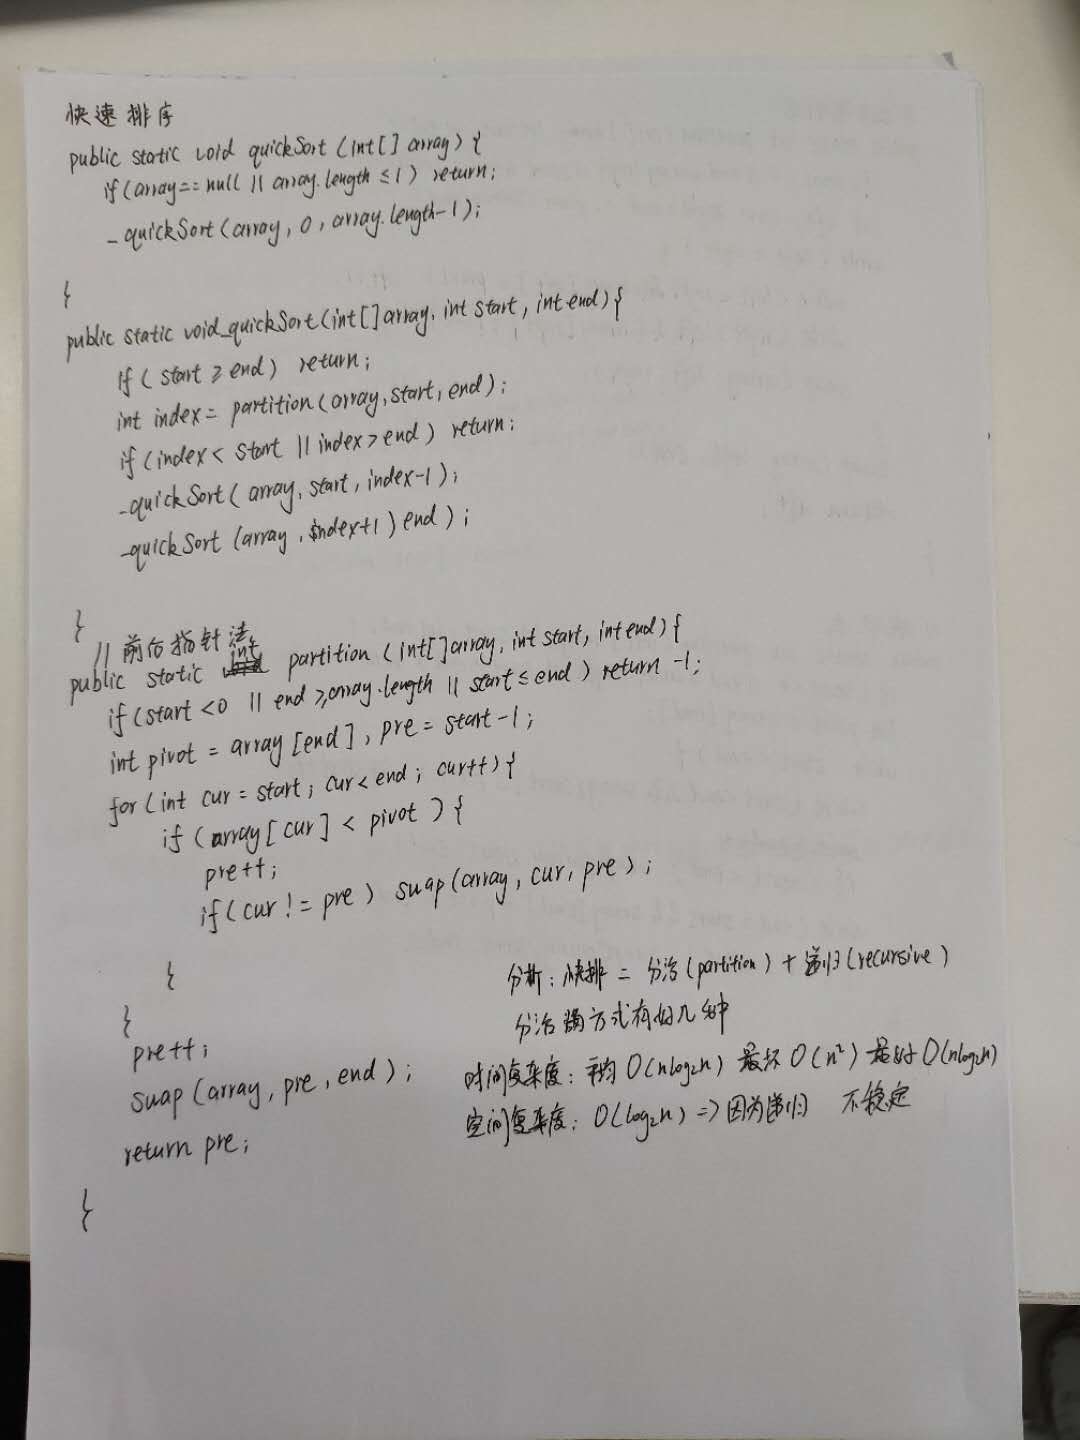 快速排序
public static void quickSort (int[] array) {
if(array==null || array.length ≤1) return;
_quickSort(array, 0, array.length-1);
}
public static void_quickSort(int[]array, int start, int end){
if( start ≥ end) return;
int index= partition(array,start, end);
if(index< start || index>end) return;
_quickSort( array, start, index-1);
_quickSort (array, index+1) end);
}
// 前后指针法
public static int partition (int[]array, int start, int end){
if(start <0 || end ≥array.length || start≤end) return -1;
int pivot = array [end], pre = start-1;
for(int cur = start; cur<end; cur++){
if (array[cur] < pivot ) {
pre++;
if(cur != pre) swap(array, cur, pre);
}
}
pre++;
swap(array, pre, end);
return pre;
}
分析: 快排 = 分治(partition) + 递归(recursive)
分治 方式有好几种
时间复杂度: 平均 O(nlog₂n) 最坏 O(n²) 最好 O(nlog₂n)
空间复杂度: O(log₂n) => 因为递归 不稳定